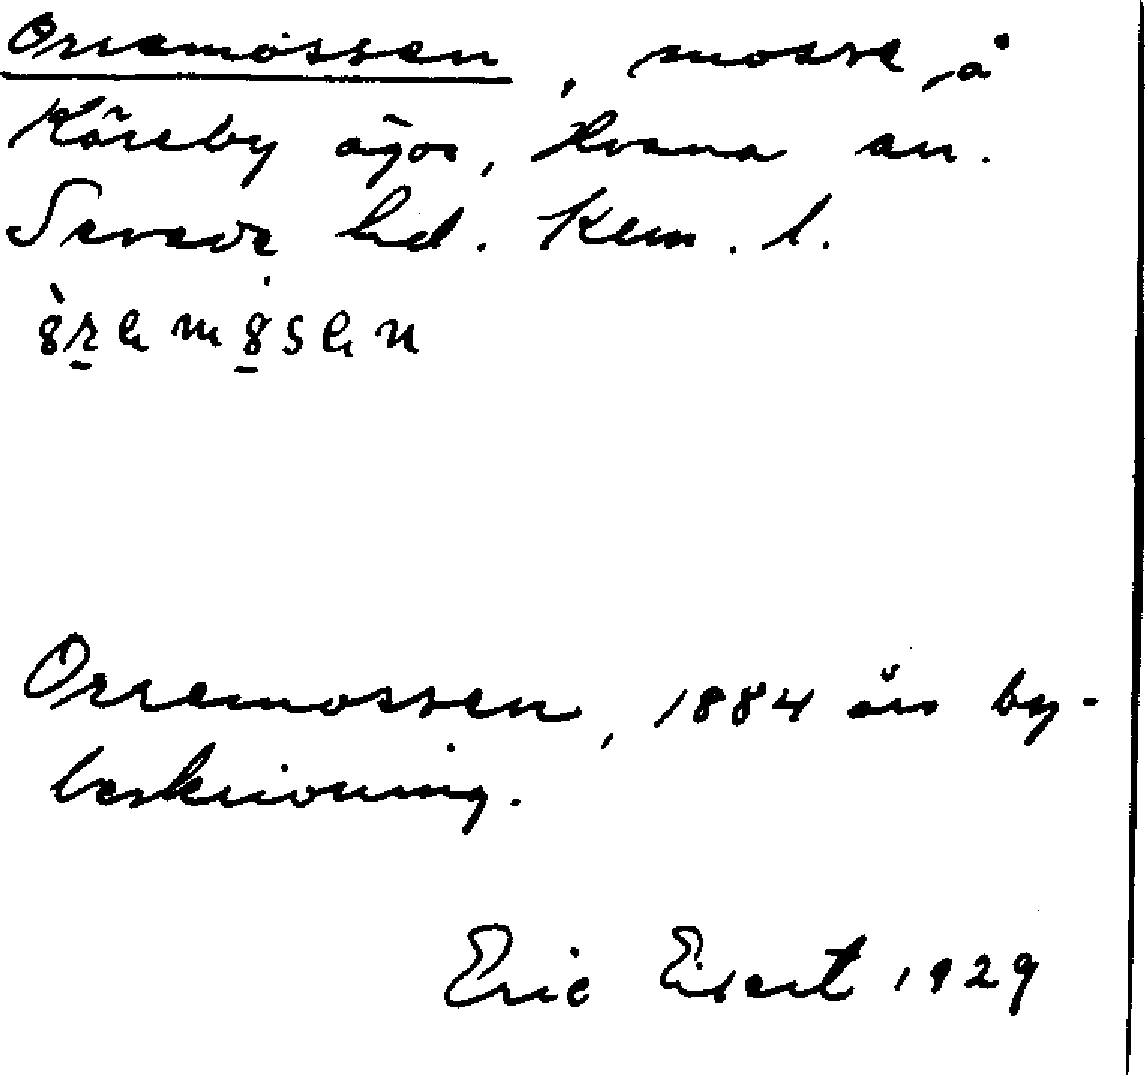 Orremossen, mosse å
Kåreby ägor, Hvena sn.
Sevede hd. Kalm. l.
Orremossen, 1884 års by-
beskrivning.
Eric 1929